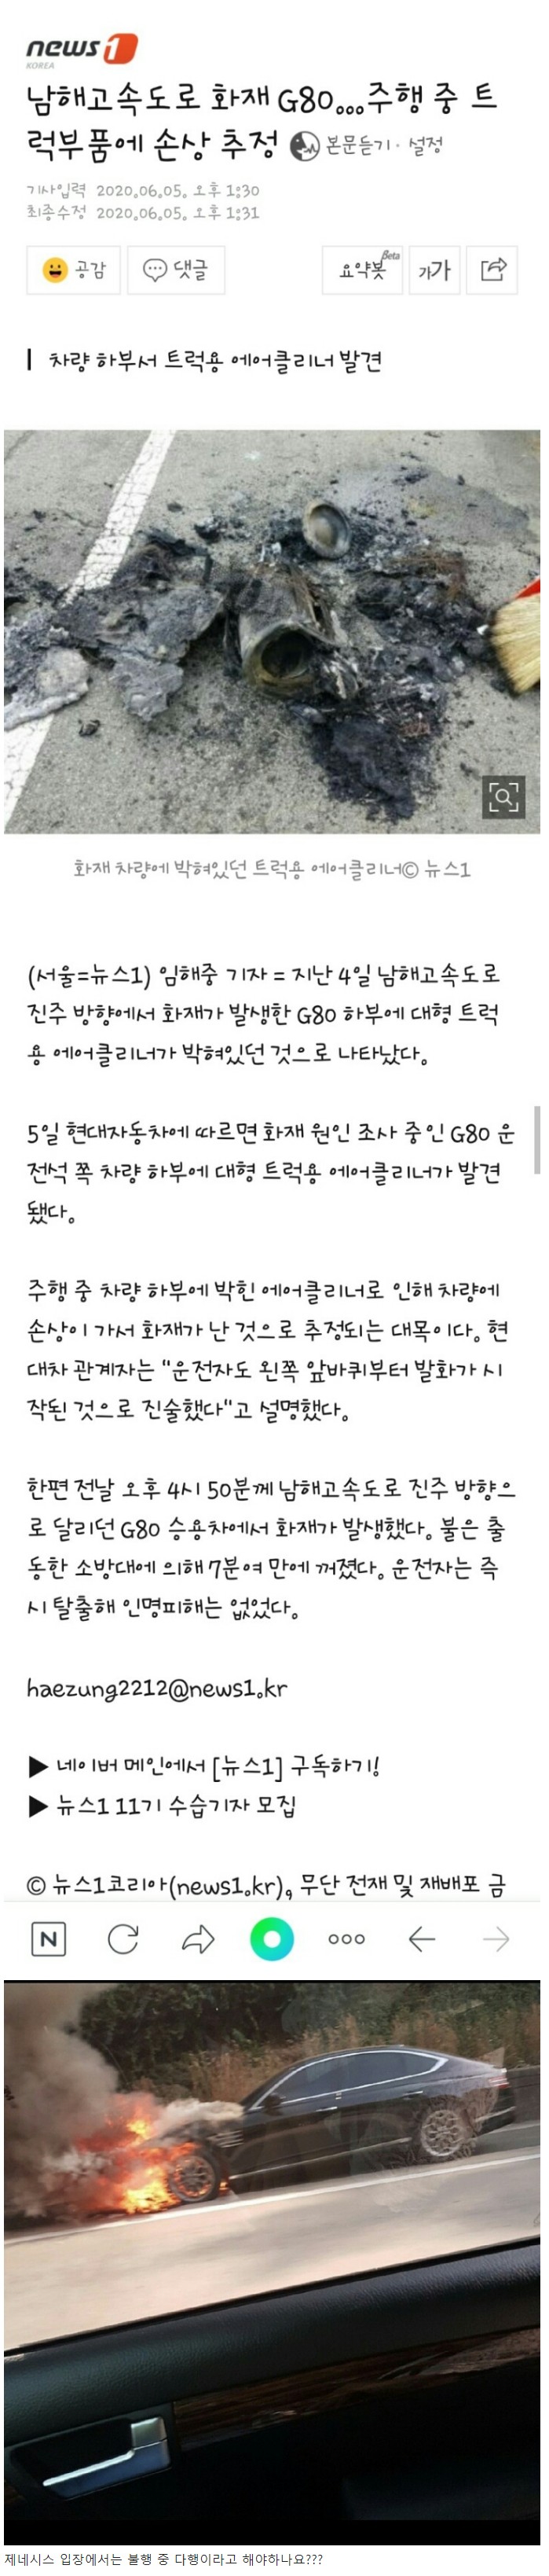 news1
KOREA
남해고속도로 화재 G80...주행 중 트
럭부품에 손상 추정 본문듣기 · 설정
기사입력 2020.06.05. 오후 1:30
최종수정 2020.06.05. 오후 1:31
공감 댓글 요약봇 Beta 가가
차량 하부서 트럭용 에어클리너 발견
화재 차량에 박혀있던 트럭용 에어클리너© 뉴스1
(서울=뉴스1) 임해중 기자 = 지난 4일 남해고속도로
진주 방향에서 화재가 발생한 G80 하부에 대형 트럭
용 에어클리너가 박혀있던 것으로 나타났다.
5일 현대자동차에 따르면 화재 원인 조사 중인 G80 운
전석 쪽 차량 하부에 대형 트럭용 에어클리너가 발견
됐다.
주행 중 차량 하부에 박힌 에어클리너로 인해 차량에
손상이 가서 화재가 난 것으로 추정되는 대목이다. 현
대차 관계자는 "운전자도 왼쪽 앞바퀴부터 발화가 시
작된 것으로 진술했다"고 설명했다.
한편 전날 오후 4시 50분께 남해고속도로 진주 방향으
로 달리던 G80 승용차에서 화재가 발생했다. 불은 출
동한 소방대에 의해 7분여 만에 꺼졌다. 운전자는 즉
시 탈출해 인명피해는 없었다.
haezung2212@news1.kr
▶ 네이버 메인에서 [뉴스1] 구독하기!
▶ 뉴스1 11기 수습기자 모집
© 뉴스1코리아(news1.kr), 무단 전재 및 재배포 금
N
제네시스 입장에서는 불행 중 다행이라고 해야하나요???